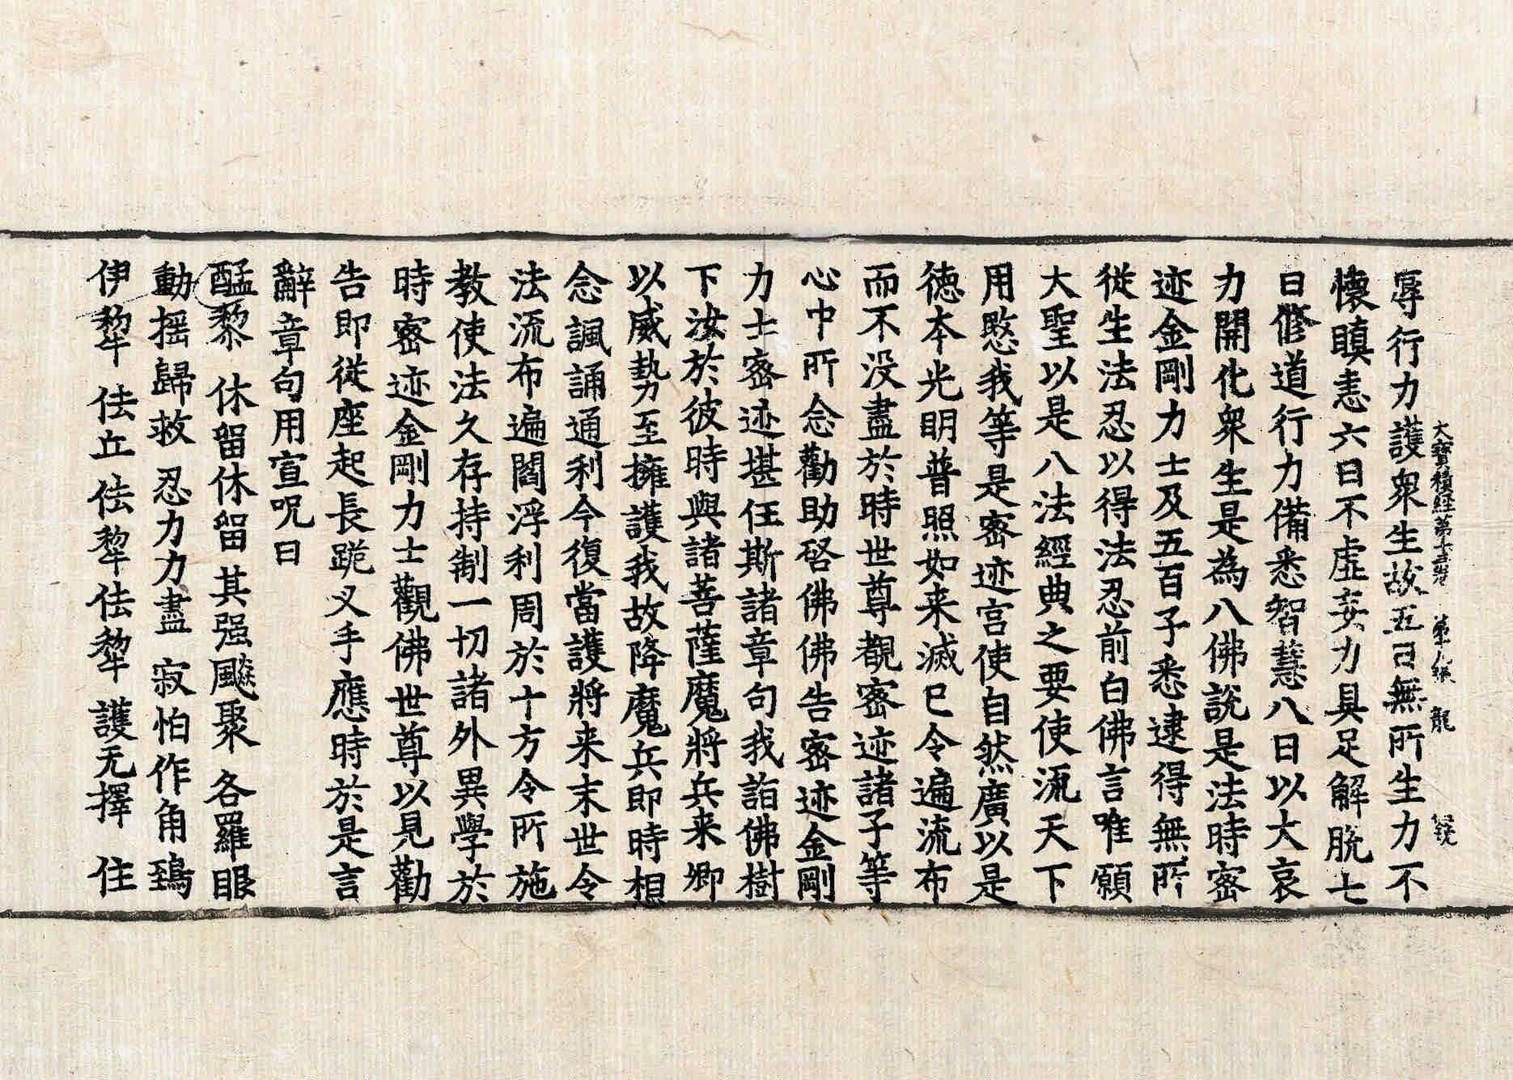 大寶積經第十四卷 第八張 龍
辱行力護衆生故五曰無所生力不
懷瞋恚六曰不虛妄力具足解脫七
曰修道行力備悉智慧八曰以大哀
力開化衆生是為八佛說是法時密
迹金剛力士及五百子悉逮得無所
從生法忍以得法忍前白佛言唯願
大聖以是八法經典之要使流天下
用愍我等是密迹宮使自然廣以是
德本光明普照如来滅已令遍流布
而不没盡於時世尊觀密迹諸子等
心中所念勸助啓佛佛告密迹金剛
力士密迹堪任斯諸章句我詣佛樹
下汝於彼時與諸菩薩魔將兵来鄉
以威勢至擁護我故降魔兵即時相
念諷誦通利今復當護將来末世令
法流布遍閻浮利周於十方令所施
教使法久存持制一切諸外異學於
時密迹金剛力士觀佛世尊以見勸
告即從座起長跪叉手應時於是言
辭章句用宣呪曰
醯黎 休留休留 其强飈聚 各羅眼
動摇歸救 忍力力盡 寂怕作角鵄
伊犂 佉丘 佉犂佉犂 護无擇 住